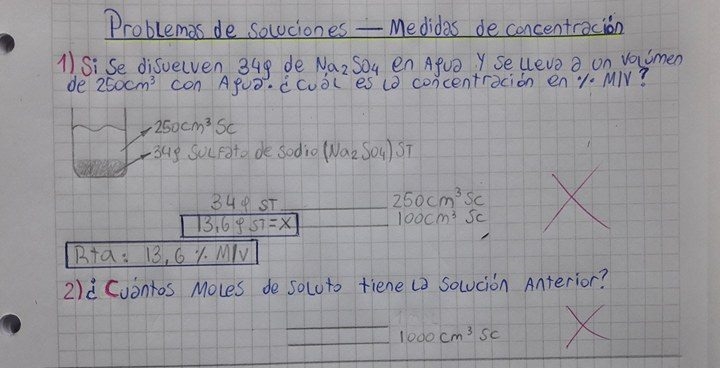 Problemas de soluciones — Medidas de concentración
1) Si se disuelven 34g de Na2SO4 en Agua y se lleva a un volúmen
de 250cm³ con Agua. ¿cuál es la concentración en % M/V?
250cm³ Sc
34g Sulfato de sodio (Na2SO4) ST
34g ST ______ 250cm³ Sc
13,6g ST = X ______ 100cm³ Sc
Rta: 13,6 % M/V
2) ¿Cuántos Moles de soluto tiene la solución Anterior?
______
______ 1000 cm³ Sc